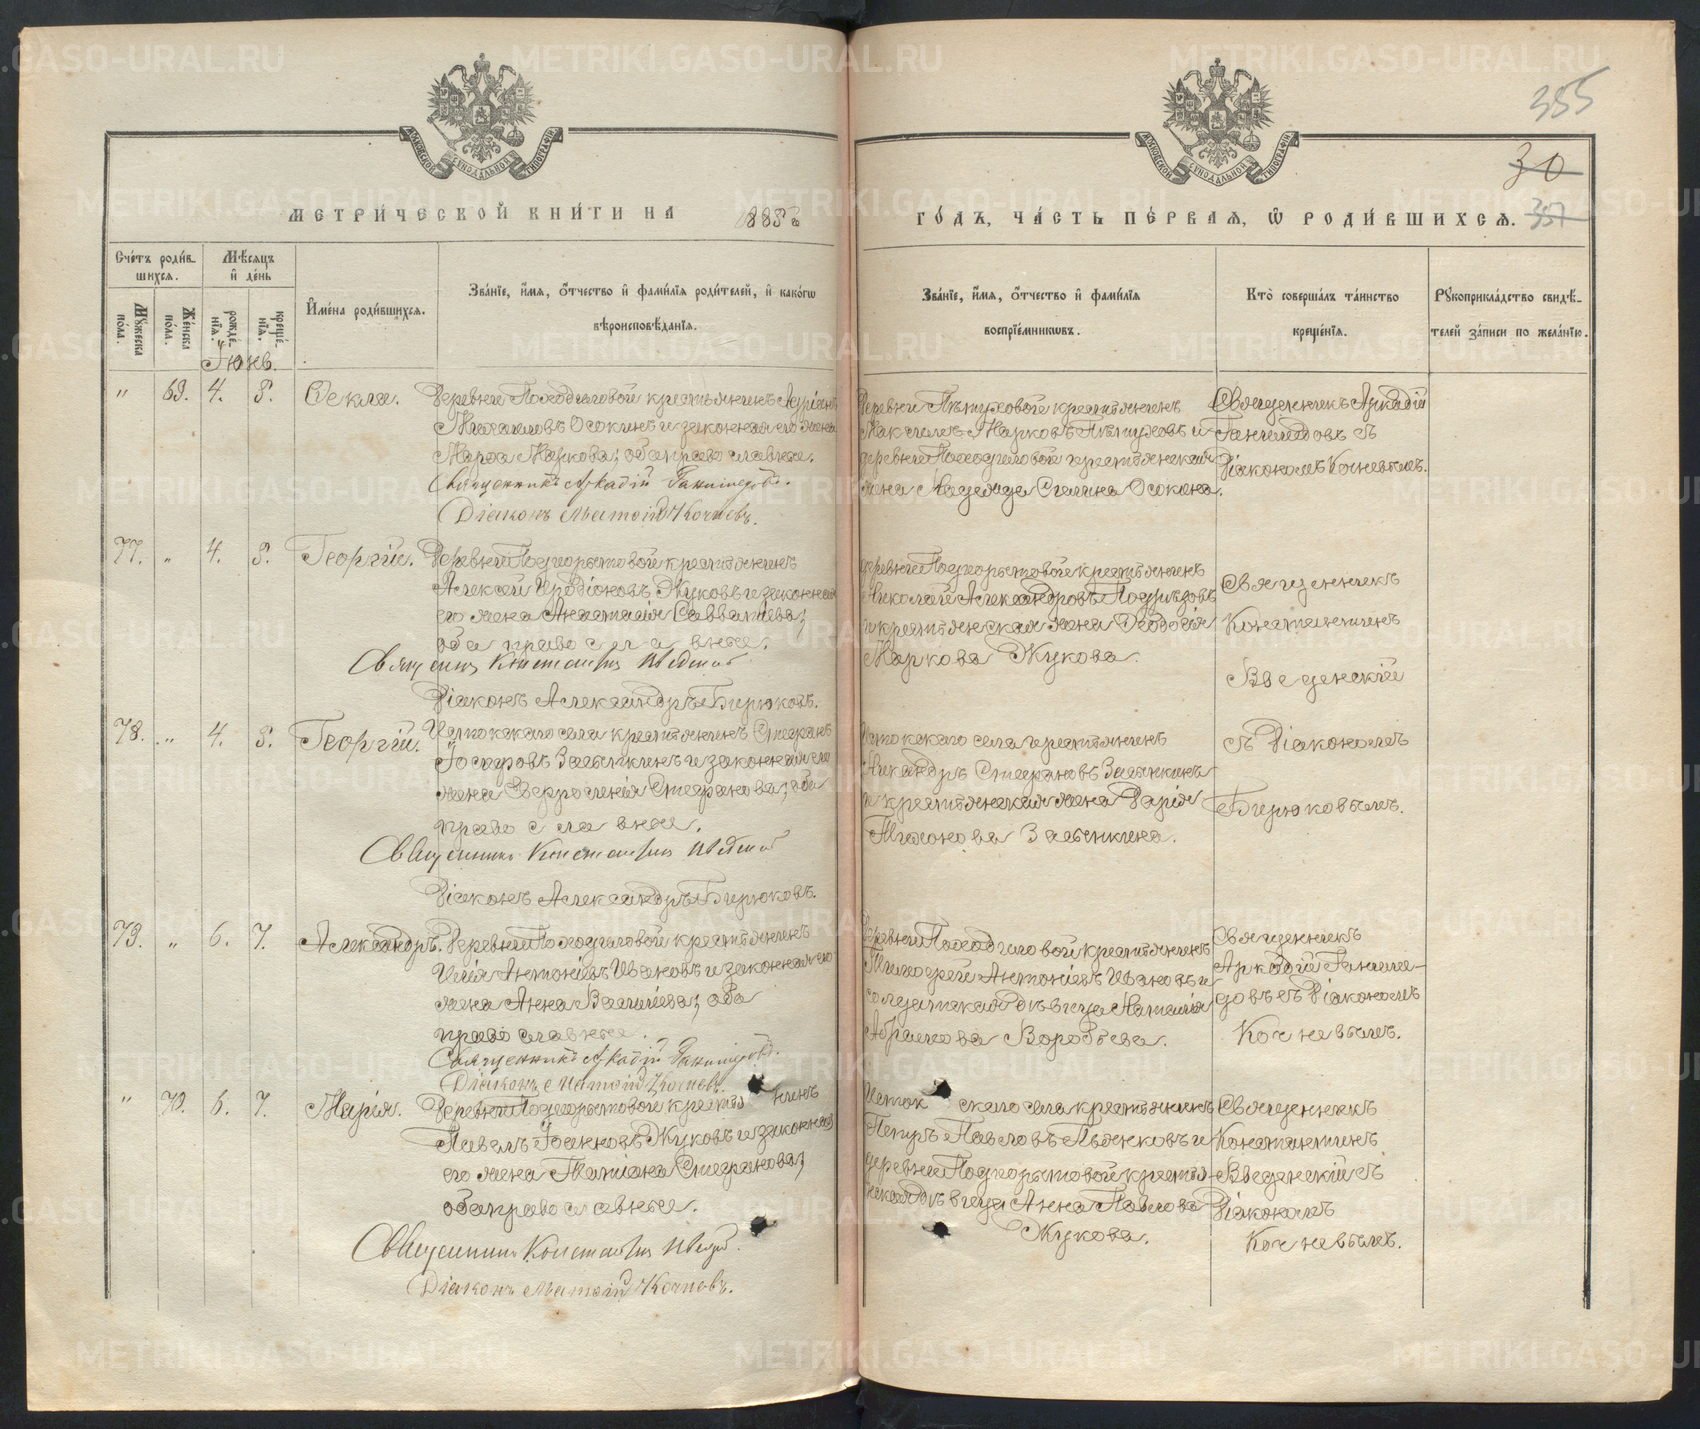 355
30
357
МЕТРИ́ЧЕСКОЙ КНИ́ГИ НА 1885
ГО́ДЪ, ЧА́СТЬ ПЕ́РВАЯ, Ѡ РОДИ́ВШИХСЯ.
Сче́тъ роди́в-
шихся.
Мѣ́сяцъ
и̂ де́нь
Му́жеска
по́ла.
Же́нска
по́ла.
рожде́-
нїя.
креще́-
нїя.
И̂мена̀ роди́вшихся.
Зва́нїе, и҆́мя, ѻ҆́тчество и҆ фами́лїя роди́телей, и҆ како́гѡ
вѣроисповѣ́данїя.
Зва́нїе, и҆́мя, ѻ҆́тчество и҆ фами́лїя
воспрїе́мникѡвъ.
Кто̀ соверша́лъ та́инство
креще́нїя.
Рꙋкоприкла́дство свидѣ́-
телей за́писи по жела́нїю.
Іюнь.
" 69. 4. 5. Ѳекла.
Деревни Походиловой крестьянинъ Адріанъ
Михаиловъ Осокинъ и законная его жена
Марѳа Маркова; оба православные.
Священникъ Аркадій
Діаконъ Матвій Кочневъ.
Деревни Пѣтуховой крестьянинъ
Максимъ Марковъ Пѣтуховъ и
деревни Походиловой крестьянская
жена Надежда Осокина.
Священникъ Аркадій
съ
Діакономъ Кочневымъ.
77. " 4. 5. Георгій.
Деревни Подкорытовой крестьянинъ
Алексѣй Иродіоновъ Жуковъ и законная
его жена Анастасія Савватіева;
оба православные.
Священникъ Константинъ Введенскій
Діаконъ Александръ Бирюковъ.
деревни Подкорытовой крестьянинъ
Николай Александровъ
и крестьянская жена Ѳеодосія
Маркова Жукова.
Священникъ
Константинъ
Введенскій
78. " 4. 5. Георгій.
Истокскаго села крестьянинъ Стефанъ
Іосифовъ и законная его
жена Евфросинія Стефанова; оба
православные.
Священникъ Константинъ Введенскій
Діаконъ Александръ Бирюковъ.
Истокскаго села крестьянинъ
Никандръ Стефановъ
и крестьянская жена Дарія
съ Діакономъ
Бирюковымъ.
79. " 6. 7. Александръ.
Деревни Походиловой крестьянинъ
Илія Антоніевъ Ивановъ и законная его
жена Анна Василіева; оба
православные.
Священникъ Аркадій
Діаконъ Матвій Кочневъ.
Деревни Походиловой крестьянинъ
Тимофей Антоніевъ Ивановъ и
солдатская дѣвица Наталія
Абрамова Воробьева.
Священникъ
Аркадій
съ Діакономъ
Кочневымъ.
" 70. 6. 7. Марія.
Деревни Подкорытовой крестьянинъ
Павелъ Іоанновъ Жуковъ и законная
его жена Татіана Стефанова;
оба православные.
Священникъ Константинъ Введенскій
Діаконъ Матвій Кочневъ.
Истокскаго села крестьянинъ
Петръ Павловъ Пьянковъ и
деревни Подкорытовой крестья-
нская дѣвица Анна Павлова
Жукова.
Священникъ
Константинъ
Введенскій съ
Діакономъ
Кочневымъ.
METRIKI.GASO-URAL.RU